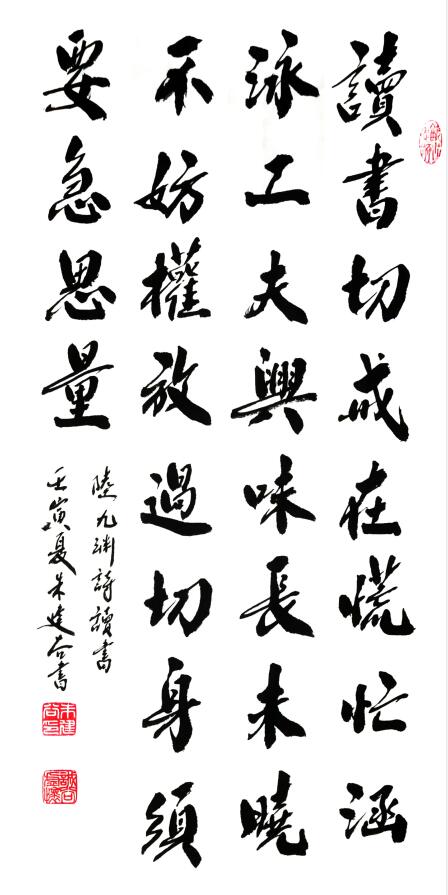 讀書切戒在慌忙涵
泳工夫興味長未曉
不妨權放過切身須
要急思量
陸九渊詩讀書
壬寅夏朱建谷書